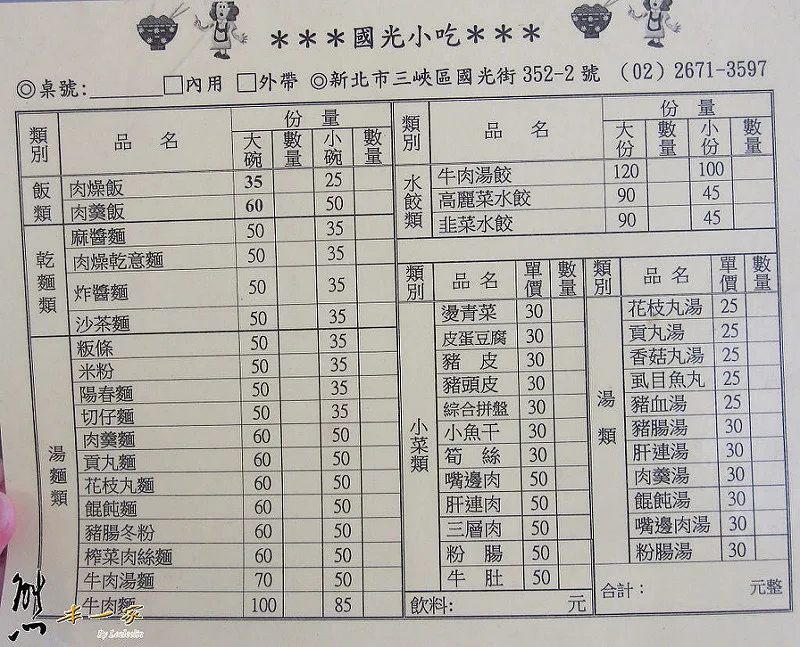 ***國光小吃***
◎桌號:______ □內用 □外帶 ◎新北市三峽區國光街352-2號 (02) 2671-3597
類別 品名 份量 大碗 數量 小碗 數量
飯類
肉燥飯 35 25
肉羹飯 60 50
乾麵類
麻醬麵 50 35
肉燥乾意麵 50 35
炸醬麵 50 35
沙茶麵 50 35
湯麵類
粄條 50 35
米粉 50 35
陽春麵 50 35
切仔麵 50 35
肉羹麵 60 50
貢丸麵 60 50
花枝丸麵 60 50
餛飩麵 60 50
豬腸冬粉 60 50
榨菜肉絲麵 60 50
牛肉湯麵 70 50
牛肉麵 100 85
類別 品名 份量 大份 數量 小份 數量
水餃類
牛肉湯餃 120 100
高麗菜水餃 90 45
韭菜水餃 90 45
類別 品名 單價 數量
小菜類
燙青菜 30
皮蛋豆腐 30
豬皮 30
豬頭皮 30
綜合拼盤 30
小魚干 30
筍絲 30
嘴邊肉 50
肝連肉 50
三層肉 50
粉腸 50
牛肚 50
飲料: 元
類別 品名 單價 數量
湯類
花枝丸湯 25
貢丸湯 25
香菇丸湯 25
虱目魚丸 25
豬血湯 25
豬腸湯 30
肝連湯 30
肉羹湯 30
餛飩湯 30
嘴邊肉湯 30
粉腸湯 30
合計: 元整
熊本一家